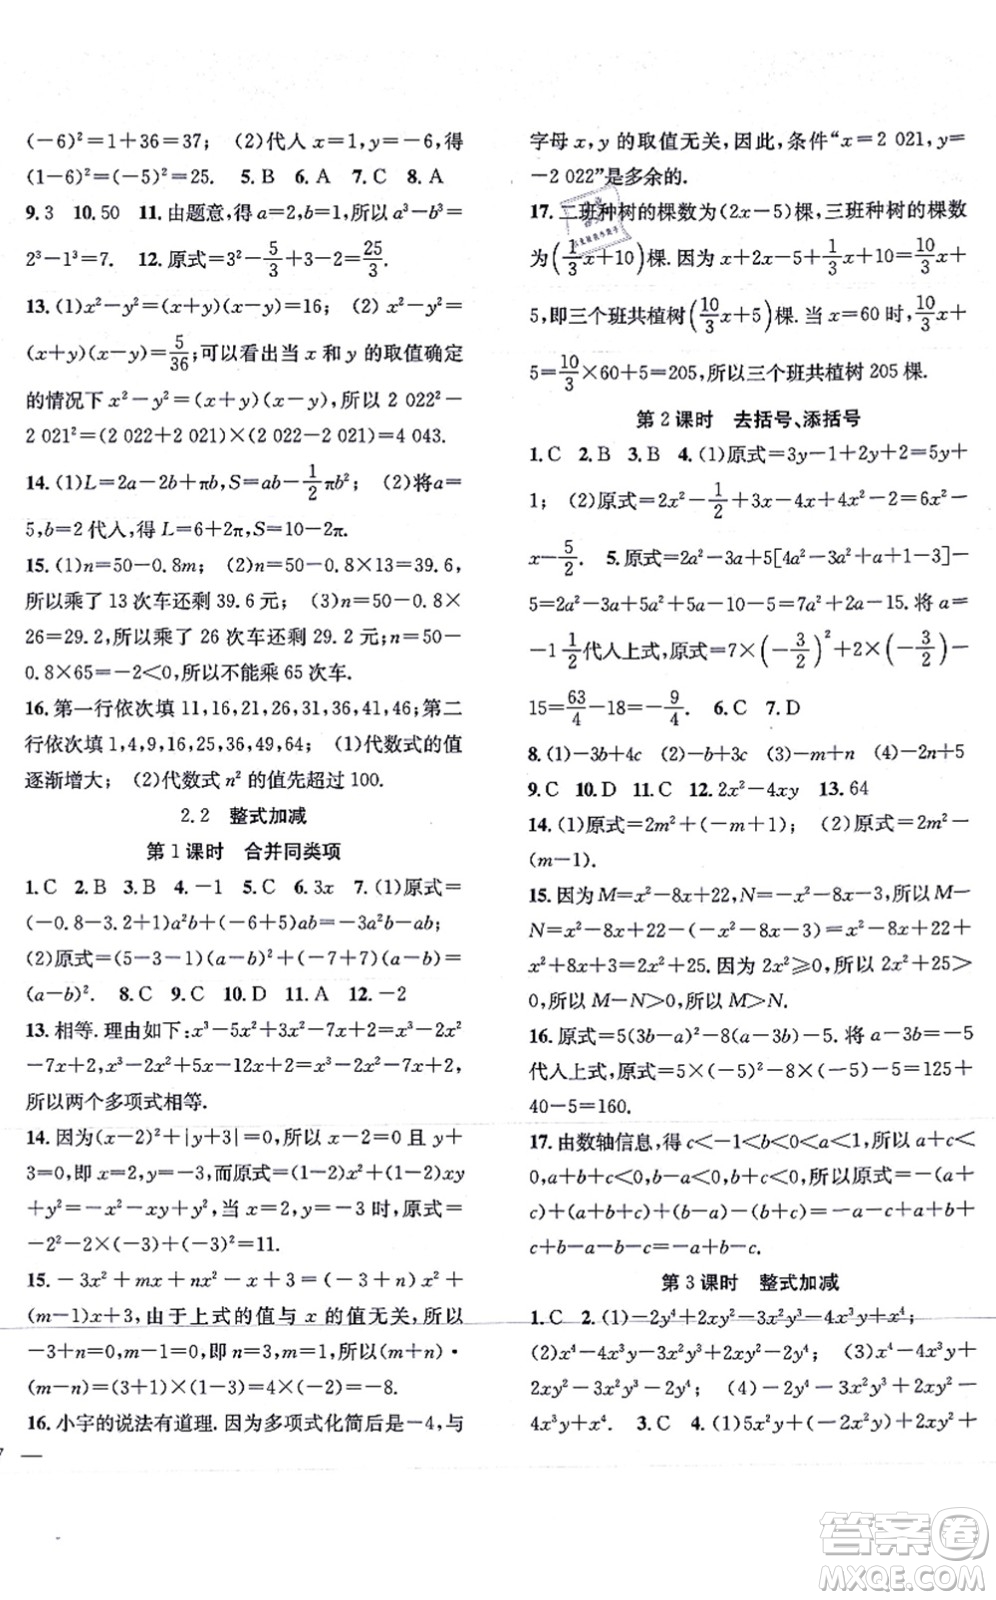 (－6)²＝1＋36＝37；　(2)代入 x＝1,y＝－6,得
(1－6)²＝(－5)²＝25.　5. B　6. A　7. C　8. A
9. 3　10. 50　11. 由题意,得 a＝2,b＝1,所以 a³－b³＝
2³－1³＝7.　12. 原式＝3²－5/3＋3－2＝25/3.
13. (1)x²－y²＝(x＋y)(x－y)＝16；　(2) x²－y²＝
(x＋y)(x－y)＝5/36；可以看出当 x 和 y 的取值确定
的情况下 x²－y²＝(x＋y)(x－y),所以 2 022²－
2 021²＝(2 022＋2 021)×(2 022－2 021)＝4 043.
14. (1)L＝2a－2b＋πb,S＝ab－1/2πb²；　(2)将a＝
5,b＝2 代入,得 L＝6＋2π,S＝10－2π.
15. (1)n＝50－0.8m；　(2)n＝50－0.8×13＝39.6,
所以乘了 13 次车还剩 39.6 元；(3)n＝50－0.8×
26＝29.2,所以乘了 26 次车还剩 29.2 元；50－
0.8×65＝－2＜0,所以不能乘 65 次车.
16. 第一行依次填 11,16,21,26,31,36,41,46；第二
行依次填 1,4,9,16,25,36,49,64；　(1)代数式的值
逐渐增大；　(2)代数式 n² 的值先超过 100.
2.2　整式加减
第 1 课时　合并同类项
1. C　2. B　3. B　4. －1　5. C　6. 3x　7. (1)原式＝
(－0.8－3.2＋1)a²b＋(－6＋5)ab＝－3a²b－ab；
(2)原式＝(5－3－1)(a－b)²＋(－7＋7)(a－b)＝
(a－b)².　8. C　9. C　10. D　11. A　12. －2
13. 相等. 理由如下：x³－5x²＋3x²－7x＋2＝x³－2x²
－7x＋2,x³－2x²＋5x－12x＋2＝x³－2x²－7x＋2,
所以两个多项式相等.
14. 因为(x－2)²＋|y＋3|＝0,所以 x－2＝0 且 y＋
3＝0,即 x＝2,y＝－3,而原式＝(1－2)x²＋(1－2)xy
＋y²＝－x²－xy＋y²,当 x＝2,y＝－3 时,原式＝
－2²－2×(－3)＋(－3)²＝11.
15. －3x²＋mx＋nx²－x＋3＝(－3＋n)x²＋
(m－1)x＋3,由于上式的值与 x 的值无关,所以
－3＋n＝0,m－1＝0,即 n＝3,m＝1,所以(m＋n)·
(m－n)＝(3＋1)×(1－3)＝4×(－2)＝－8.
16. 小宇的说法有道理. 因为多项式化简后是－4,与
7 —
字母 x,y 的取值无关,因此,条件“x＝2 021,y＝
－2 022”是多余的.
17. 二班种树的棵数为(2x－5)棵,三班种树的棵数
为(1/3x＋10)棵. 因为 x＋2x－5＋1/3x＋10＝10/3x＋
5,即三个班共植树(10/3x＋5)棵. 当 x＝60 时,10/3x＋
5＝10/3×60＋5＝205,所以三个班共植树 205 棵.
第 2 课时　去括号、添括号
1. C　2. B　3. B　4. (1)原式＝3y－1＋2y＋2＝5y＋
1；　(2)原式＝2x²－1/2＋3x－4x＋4x²－2＝6x²－
x－5/2.　5. 原式＝2a²－3a＋5[4a－2a＋a²＋a＋1－3]－
5＝2a²－3a＋5a²＋15a－10a－10－5＝7a²＋2a－15. 将 a＝
－1 1/2代入上式,原式＝7×(－3/2)²＋2×(－3/2)－
15＝63/4－18＝－9/4.　6. C　7. D
8. (1)－3b＋4c　(2)－b＋3c　(3)－m＋n　(4)－2n＋5
9. C　10. D　11. C　12. 2x²－4xy　13. 64
14. (1)原式＝2m²＋(－m＋1)；　(2)原式＝2m²－
(m－1).
15. 因为 M＝x²－8x＋22,N＝－x²－8x－3,所以 M－
N＝x²－8x＋22－(－x²－8x－3)＝x²－8x＋22＋
x²＋8x＋3＝2x²＋25. 因为 2x²⩾0,所以 2x²＋25＞
0,所以 M－N＞0,所以 M＞N.
16. 原式＝5(3b－a)²－8(a－3b)－5. 将 a－3b＝－5
代入上式,原式＝5×(－5)²－8×(－5)－5＝125＋
40－5＝160.
17. 由数轴信息,得 c＜－1＜b＜0＜a＜1,所以 a＋c＜
0,a＋b＋c＜0,a－b＞0,b＋c＜0,所以原式＝－(a＋
c)＋(a＋b＋c)＋(b－a)－(b＋c)＝－a－c＋a＋b＋
c＋b－a－b－c＝b－a－c.
第 3 课时　整式加减
1. C　2. (1)－2y⁴＋2xy²－3x²y²－4x³y＋x⁴；
(2)x⁴－4x³y－3x²y²＋2xy²－2y⁴；　(3)x⁴－4x³y＋
2xy²－3x²y²－2y⁴；　(4)－2y⁴－3x²y²＋2xy²－
4x³y＋x⁴.　3. C　4. (1)5x²y－2x²y＋2xy²＋
答案圈
MXQE.COM